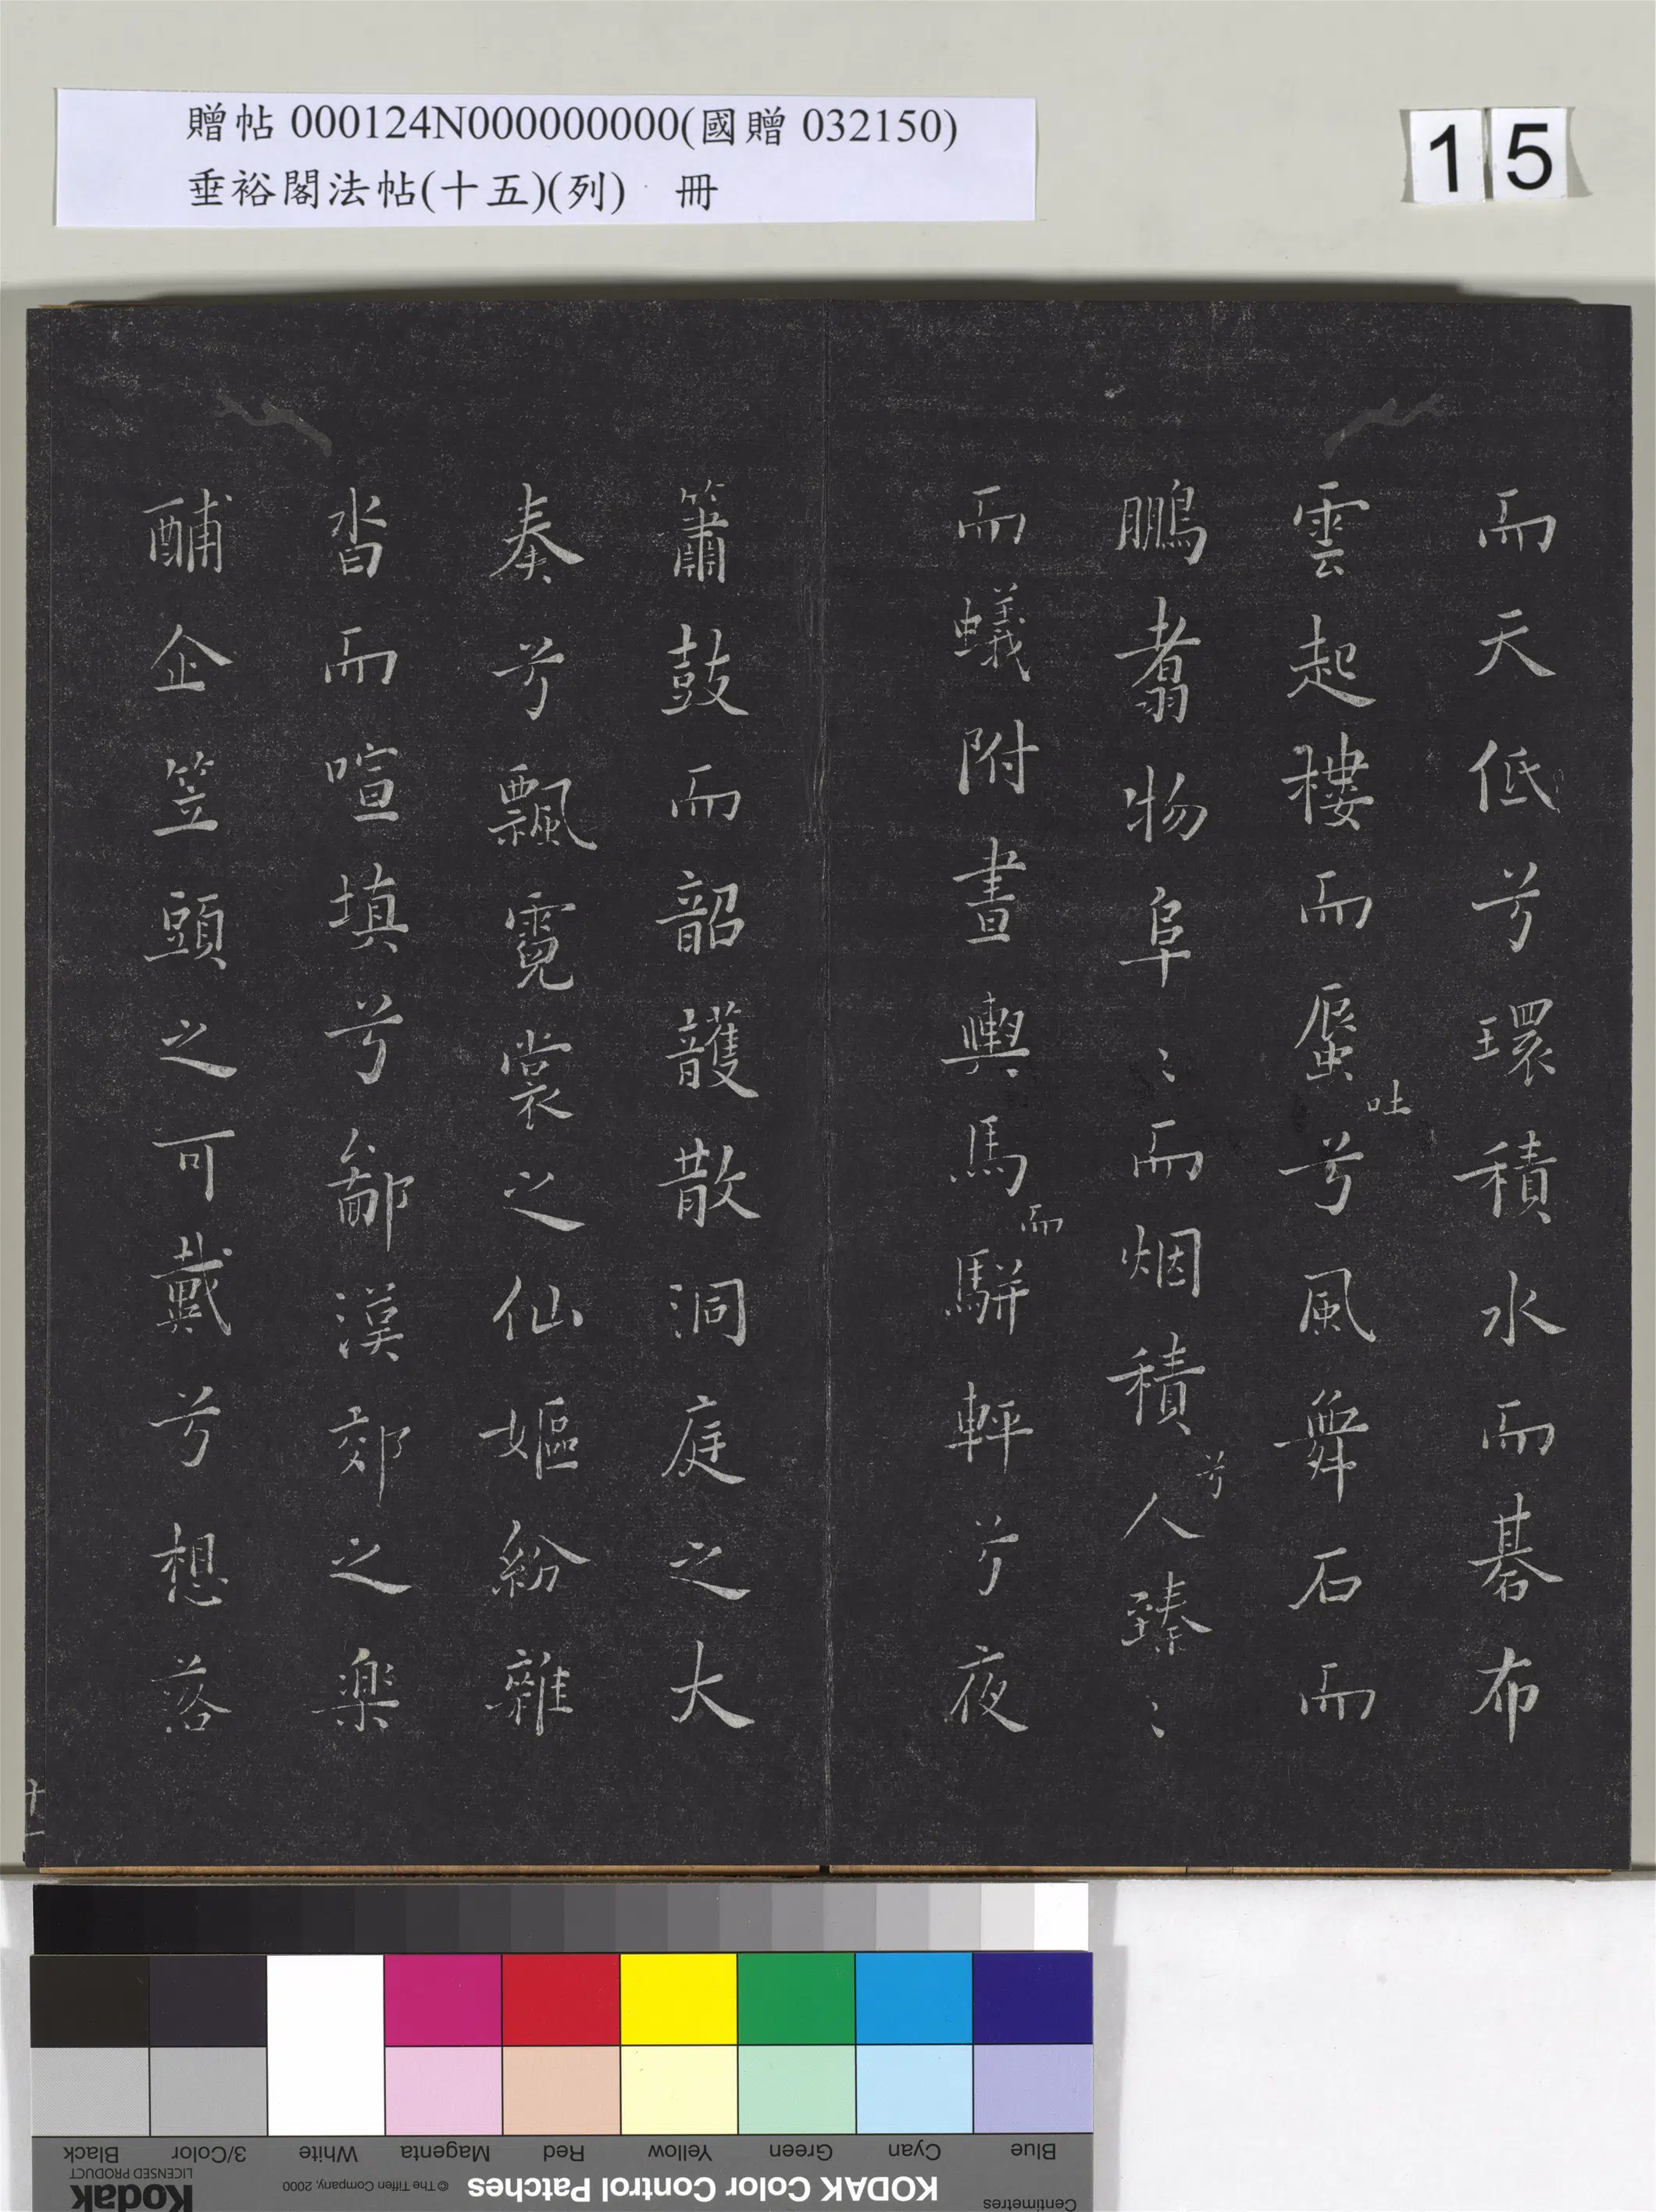 贈帖 000124N000000000(國贈 032150)
垂裕閣法帖(十五)(列) 冊
15
而天低兮環積水而碁布
雲起樓而蜃吐兮風舞石而
鵬翥物阜〻而烟積兮人臻〻
而蟻附晝輿馬而駢軿兮夜
簫鼓而韶頀散洞庭之大
奏兮飄霓裳之仙嫗紛雜
沓而喧填兮鄃漢郊之樂
酺企笠頭之可戴兮想落
十一
Black 3/Color White Magenta Red Yellow Green Cyan Blue
Kodak
LICENSED PRODUCT
© The Tiffen Company, 2000
KODAK Color Control Patches
Centimetres